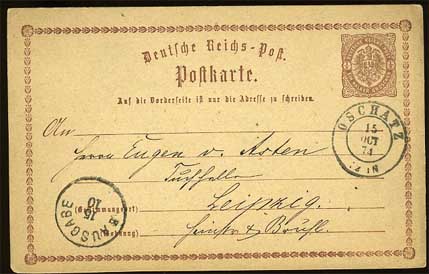 Deutsche Reichs-Post.
Postkarte.
Auf die Vorderseite ist nur die Adresse zu schreiben.
OSCHATZ
15
OCT
74
An
Herrn Eugen v. Asten
Tuchhalle
Leipzig.
(Bestimmungsort)
(Wohnung)
AUSGABE
15
10